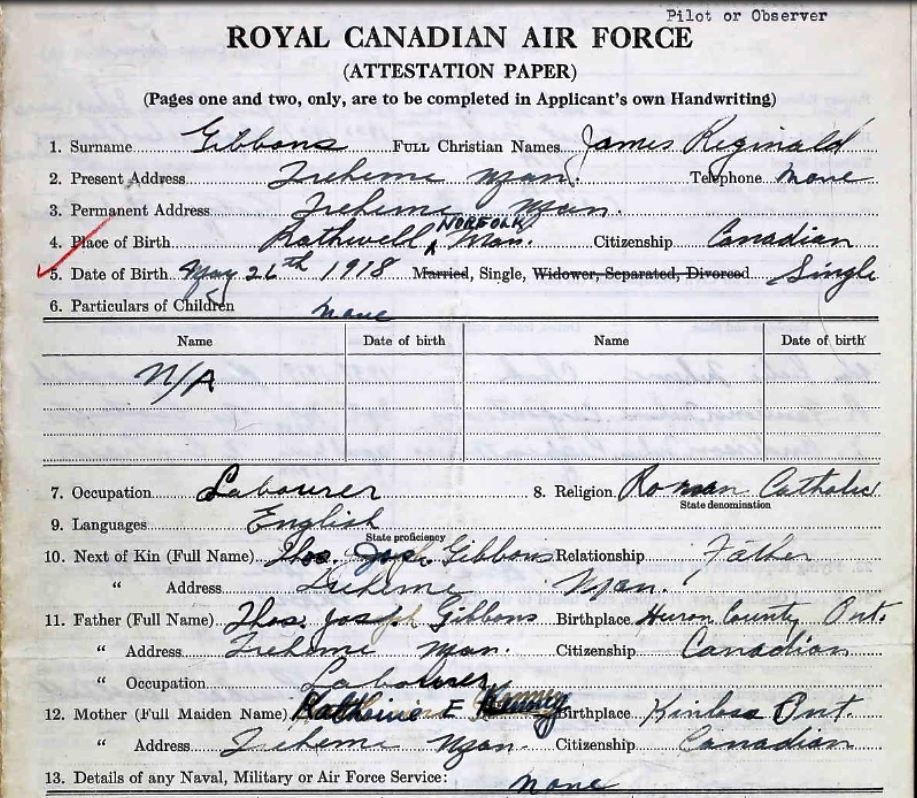 Pilot or Observer
ROYAL CANADIAN AIR FORCE
(ATTESTATION PAPER)
(Pages one and two, only, are to be completed in Applicant's own Handwriting)
1. Surname Gibbons FULL Christian Names James Reginald
2. Present Address Treherne Man. Telephone None
3. Permanent Address Treherne Man.
4. Place of Birth Rathwell NORFOLK Man. Citizenship Canadian
5. Date of Birth May 26th 1918 Married, Single, Widower, Separated, Divorced Single
6. Particulars of Children None
Name Date of birth Name Date of birth
N/A
7. Occupation Labourer 8. Religion Roman Catholic
State denomination
9. Languages English
State proficiency
10. Next of Kin (Full Name) Thos. Jos. Gibbons Relationship Father
" Address Treherne Man.
11. Father (Full Name) Thos. Joseph Gibbons Birthplace Huron County Ont.
" Address Treherne Man. Citizenship Canadian
" Occupation Labourer
12. Mother (Full Maiden Name) Katherine E Birthplace Kinloss Ont.
" Address Treherne Man. Citizenship Canadian
13. Details of any Naval, Military or Air Force Service: None